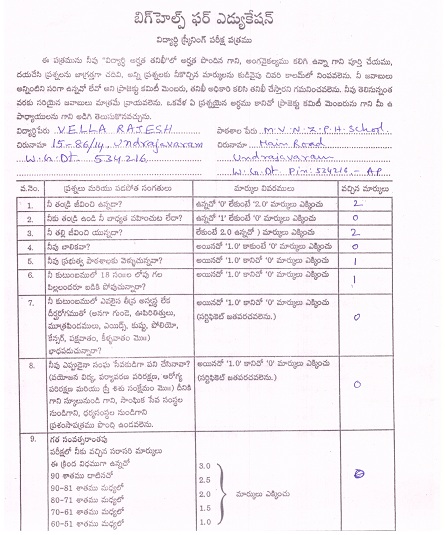 బిగ్‌హెల్ప్ ఫర్ ఎడ్యుకేషన్
విద్యార్థి స్క్రీనింగ్ పరీక్ష పత్రము
ఈ పత్రమును నీవు "విద్యార్థి అర్హత తనిఖీ"లో అర్హత పొందిన గాని, అంగవైకల్యము కలిగి ఉన్నా గాని పూర్తి చేయము,
దయచేసి ప్రశ్నలను జాగ్రత్తగా చదివి, అన్ని ప్రశ్నలకు నీకొచ్చిన మార్కులను కుడివైపు చివరి కాలమ్‌లో నింపవలెను. నీ జవాబులు
అన్నింటిని సరిగా ఉన్నవో లేవో అని ప్రాజెక్టు కమిటీ మెంబరు, తనిఖీ అధికారి కలిసి తనిఖీ చేస్తారని గమనించవలెను. నీవు తెలిసినంత
వరకు సరియైన జవాబులు మాత్రమే వ్రాయవలెను. ఒకవేళ ఏ ప్రశ్నయైన అర్థము కానిచో ప్రాజెక్టు కమిటీ మెంబరును గాని మీ ఉ
పాధ్యాయులను గాని అడిగి తెలుసుకొనవచ్చును.
విద్యార్థిపేరు VELLA RAJESH పాఠశాల పేరు M.V.N.Z.P.H. School
చిరునామా 15-86/14, Undrajavaram చిరునామా Main Road
W.G.Dt. 534216 Undrajavaram
W.G.Dt. Pin: 534216 - A.P
వ.నెం. ప్రశ్నలు మరియు పడవోత సంగతులు మార్కుల వివరములు వచ్చిన మార్కులు
1. నీ తండ్రి జీవించి ఉన్నదా? ఉన్నచో '0' లేకుంటే '2.0' మార్కులు ఎక్కించు 2
2. నీకు తండ్రి ఉండి నీ బాధ్యత వహించుట లేదా? ఉన్నచో '1' లేకుంటే '0' మార్కులు ఎక్కించు 0
3. నీ తల్లి జీవించి యున్నదా? లేకుంటే 2.0 ఉన్నచో ) మార్కులు ఎక్కించు 2
4. నీవు బాలికవా? అయినచో '1.0' కాకుంటే '0' మార్కులు ఎక్కించు 0
5. నీవు ప్రభుత్వ పాఠశాలకు వెళ్ళుచున్నావా? అయినచో '1.0' కానిచో '0' మార్కులు ఎక్కించు 1
6. నీ కుటుంబములో 18 సంబల లోపు గల అయినచో '1.0' కానిచో '0' మార్కులు ఎక్కించు 1
పిల్లలందరూ బడికి పోవుచున్నారా?
7. నీ కుటుంబములో ఎవరికైన తీవ్ర అస్వస్థ లేక అయినచో '1.0' కానిచో '0' మార్కులు ఎక్కించు 0
దీర్ఘరోగముతో (అనగా గుండె, ఊపిరితిత్తులు, (సర్టిఫికెట్ జతపరచవలెను.)
మూత్రపిండములు, ఎయిడ్స్, కుష్టు, పోలియో,
కేన్సర్, పక్షవాతం, కీళ్ళవాతం మొ॥)
బాధపడుచున్నారా?
8. నీవు ఎప్పుడైనా సంఘ సేవకుడిగా పని చేసినావా? అయినచో '1.0' కానిచో '0' మార్కులు ఎక్కించు 0
(వయోజన విద్య, పర్యావరణ పరిరక్షణ, ఆరోగ్య (సర్టిఫికెట్ జతపరచవలెను.)
పరిరక్షణ మరియు స్త్రీ శిశు సంక్షేమం మొ॥) దీనికి
గాని స్కూలునుండి గాని, సాంఘిక సేవ సంస్థల
నుండిగాని, ధర్మసంస్థల నుండిగాని
ప్రశంసాపత్రము పొంది ఉండవలెను.
9. గత సంవత్సరాంతపు
పరీక్షలో నీకు వచ్చిన సరాసరి మార్కులు
ఈ క్రింద విధముగా ఉన్నచో 3.0 0
90 శాతము దాటినచో 2.5
90-81 శాతము మధ్యలో 2.0 మార్కులు ఎక్కించు
80-71 శాతము మధ్యలో 1.5
70-61 శాతము మధ్యలో 1.0
60-51 శాతము మధ్యలో